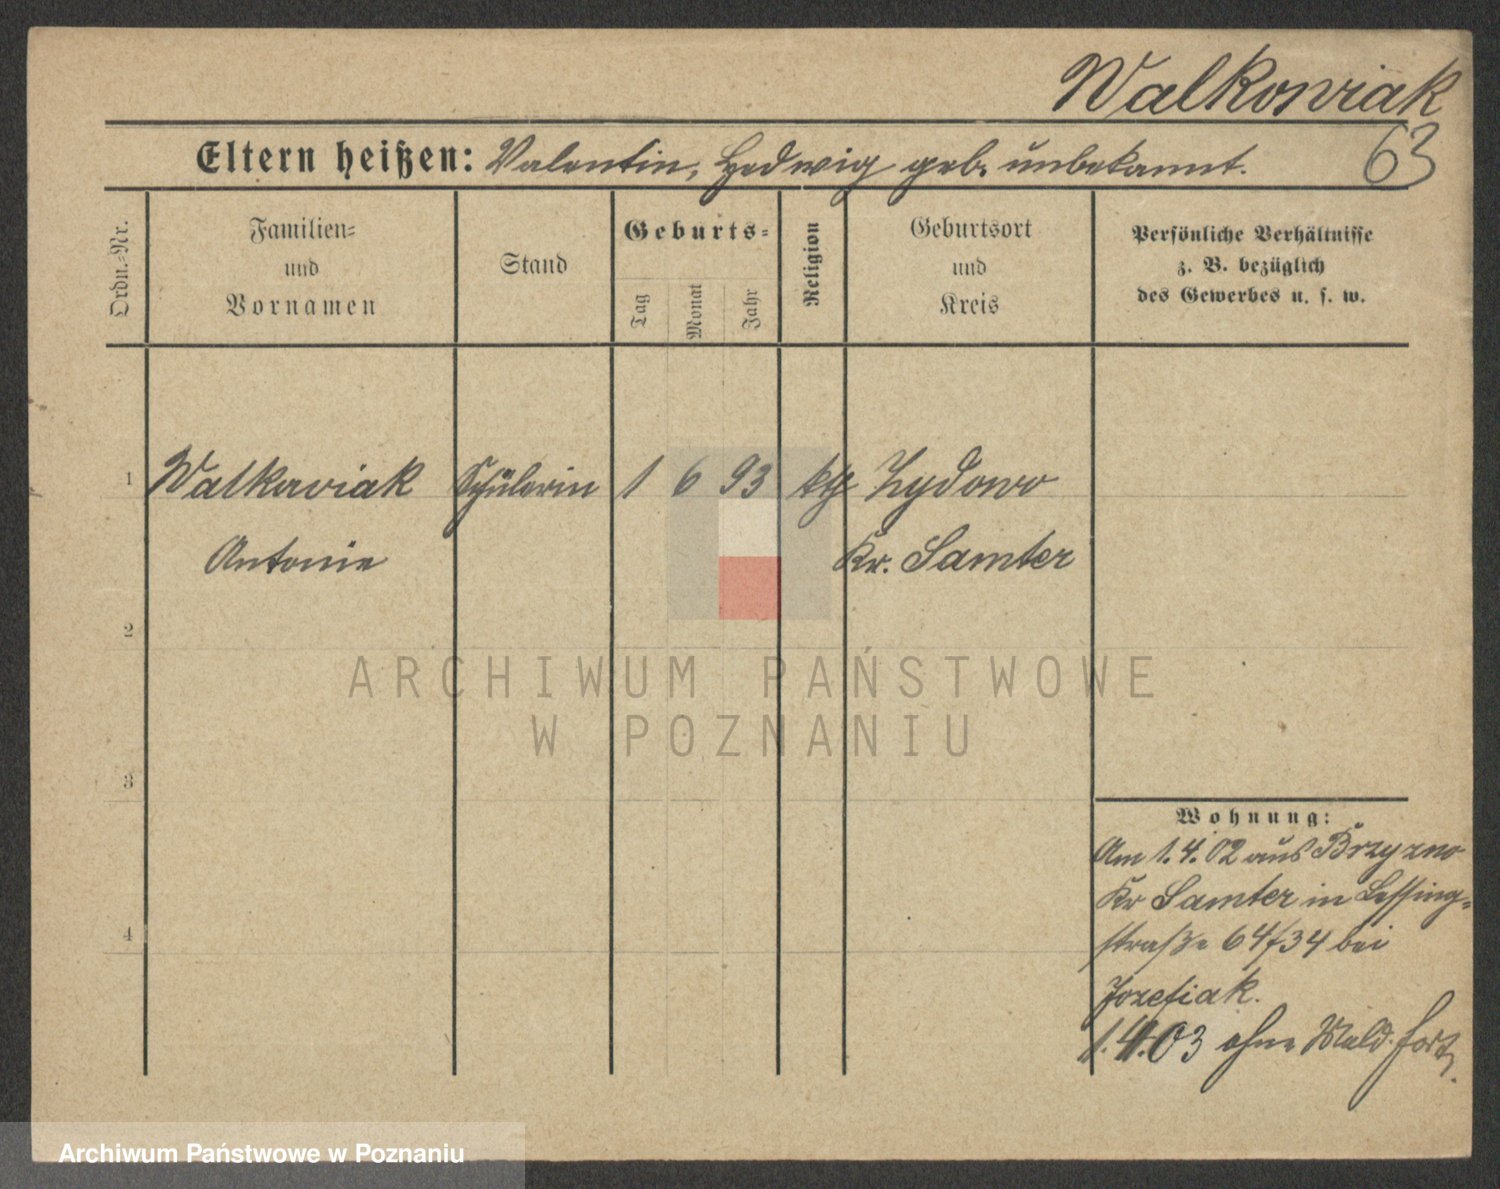 Walkowiak
63
Eltern heißen: Valentin, Hedwig geb. unbekannt.
Ordn.-Nr.
Familien-
und
Vornamen
Stand
Geburts-
Tag
Monat
Jahr
Religion
Geburtsort
und
Kreis
Persönliche Verhältnisse
z. B. bezüglich
des Gewerbes u. s. w.
1 Walkowiak Schülerin 1 6 93 kth Zydowo
Antonie Kr. Samter
2
3
4
Wohnung:
Am 1.4.02 aus Brzyzno
Kr Samter in Lessing-
straße 64/34 bei
Jozefiak.
1.4.03 ohne Meld. fort.
ARCHIWUM PAŃSTWOWE
W POZNANIU
Archiwum Państwowe w Poznaniu